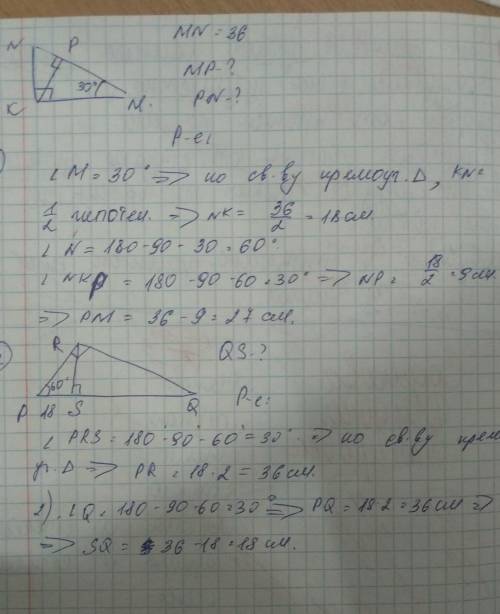 N
P
MN = 36
MP - ?
30°
PN - ?
K
M.
P-е:
∠M = 30° => по св-ву прямоуг. Δ, KN =
1/2 гипотен. => NK = 36/2 = 18 см
∠N = 180 - 90 - 30 = 60°.
∠NKP = 180 - 90 - 60 = 30° => NP = 18/2 = 9 см
=> PM = 36 - 9 = 27 см.
R
QS - ?
60°
P 18 S Q
P-е:
∠PRS = 180° - 90° - 60° = 30° => по св-ву прям
уг. Δ => PR = 18 · 2 = 36 см.
2). ∠Q = 180 - 90 - 60 = 30° => PQ = 18·2 = 36 см =>
=> SQ = 36 - 18 = 18 см.